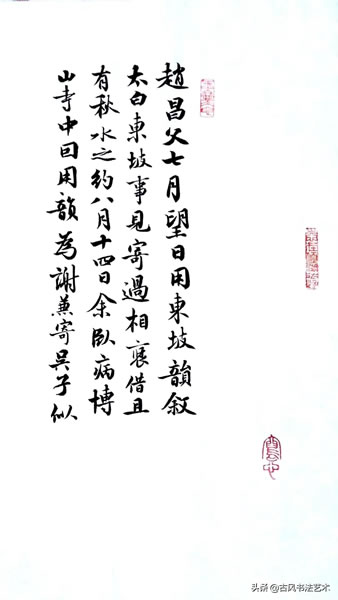 趙昌父七月望日用東坡韻叙
太白東坡事見寄過相褒借且
有秋水之約八月十四日余卧病博
山寺中因用韻為謝兼寄吳子似
头条 @古风书法艺术